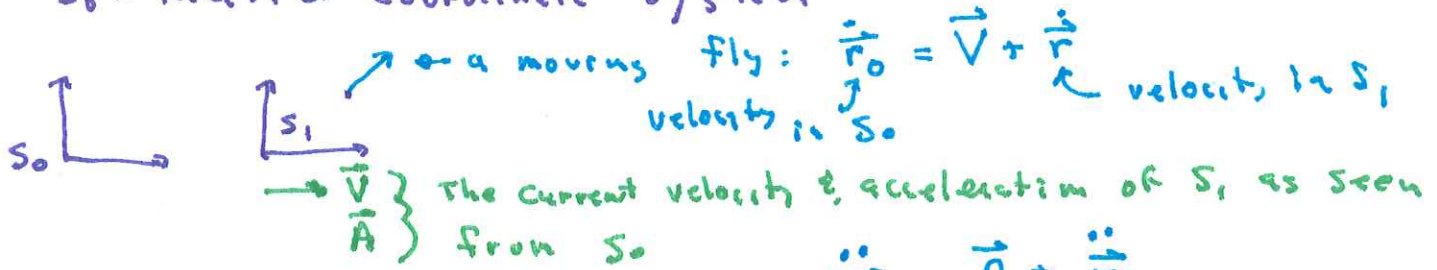 coordinate system
← a moving fly: $\dot{\vec{r}}_0 = \vec{V} + \dot{\vec{r}}$
velocity in S₁
velocity in S₀
S₀ S₁
$\vec{V}$ } The current velocity & acceleration of S₁ as seen
$\vec{A}$ } from S₀